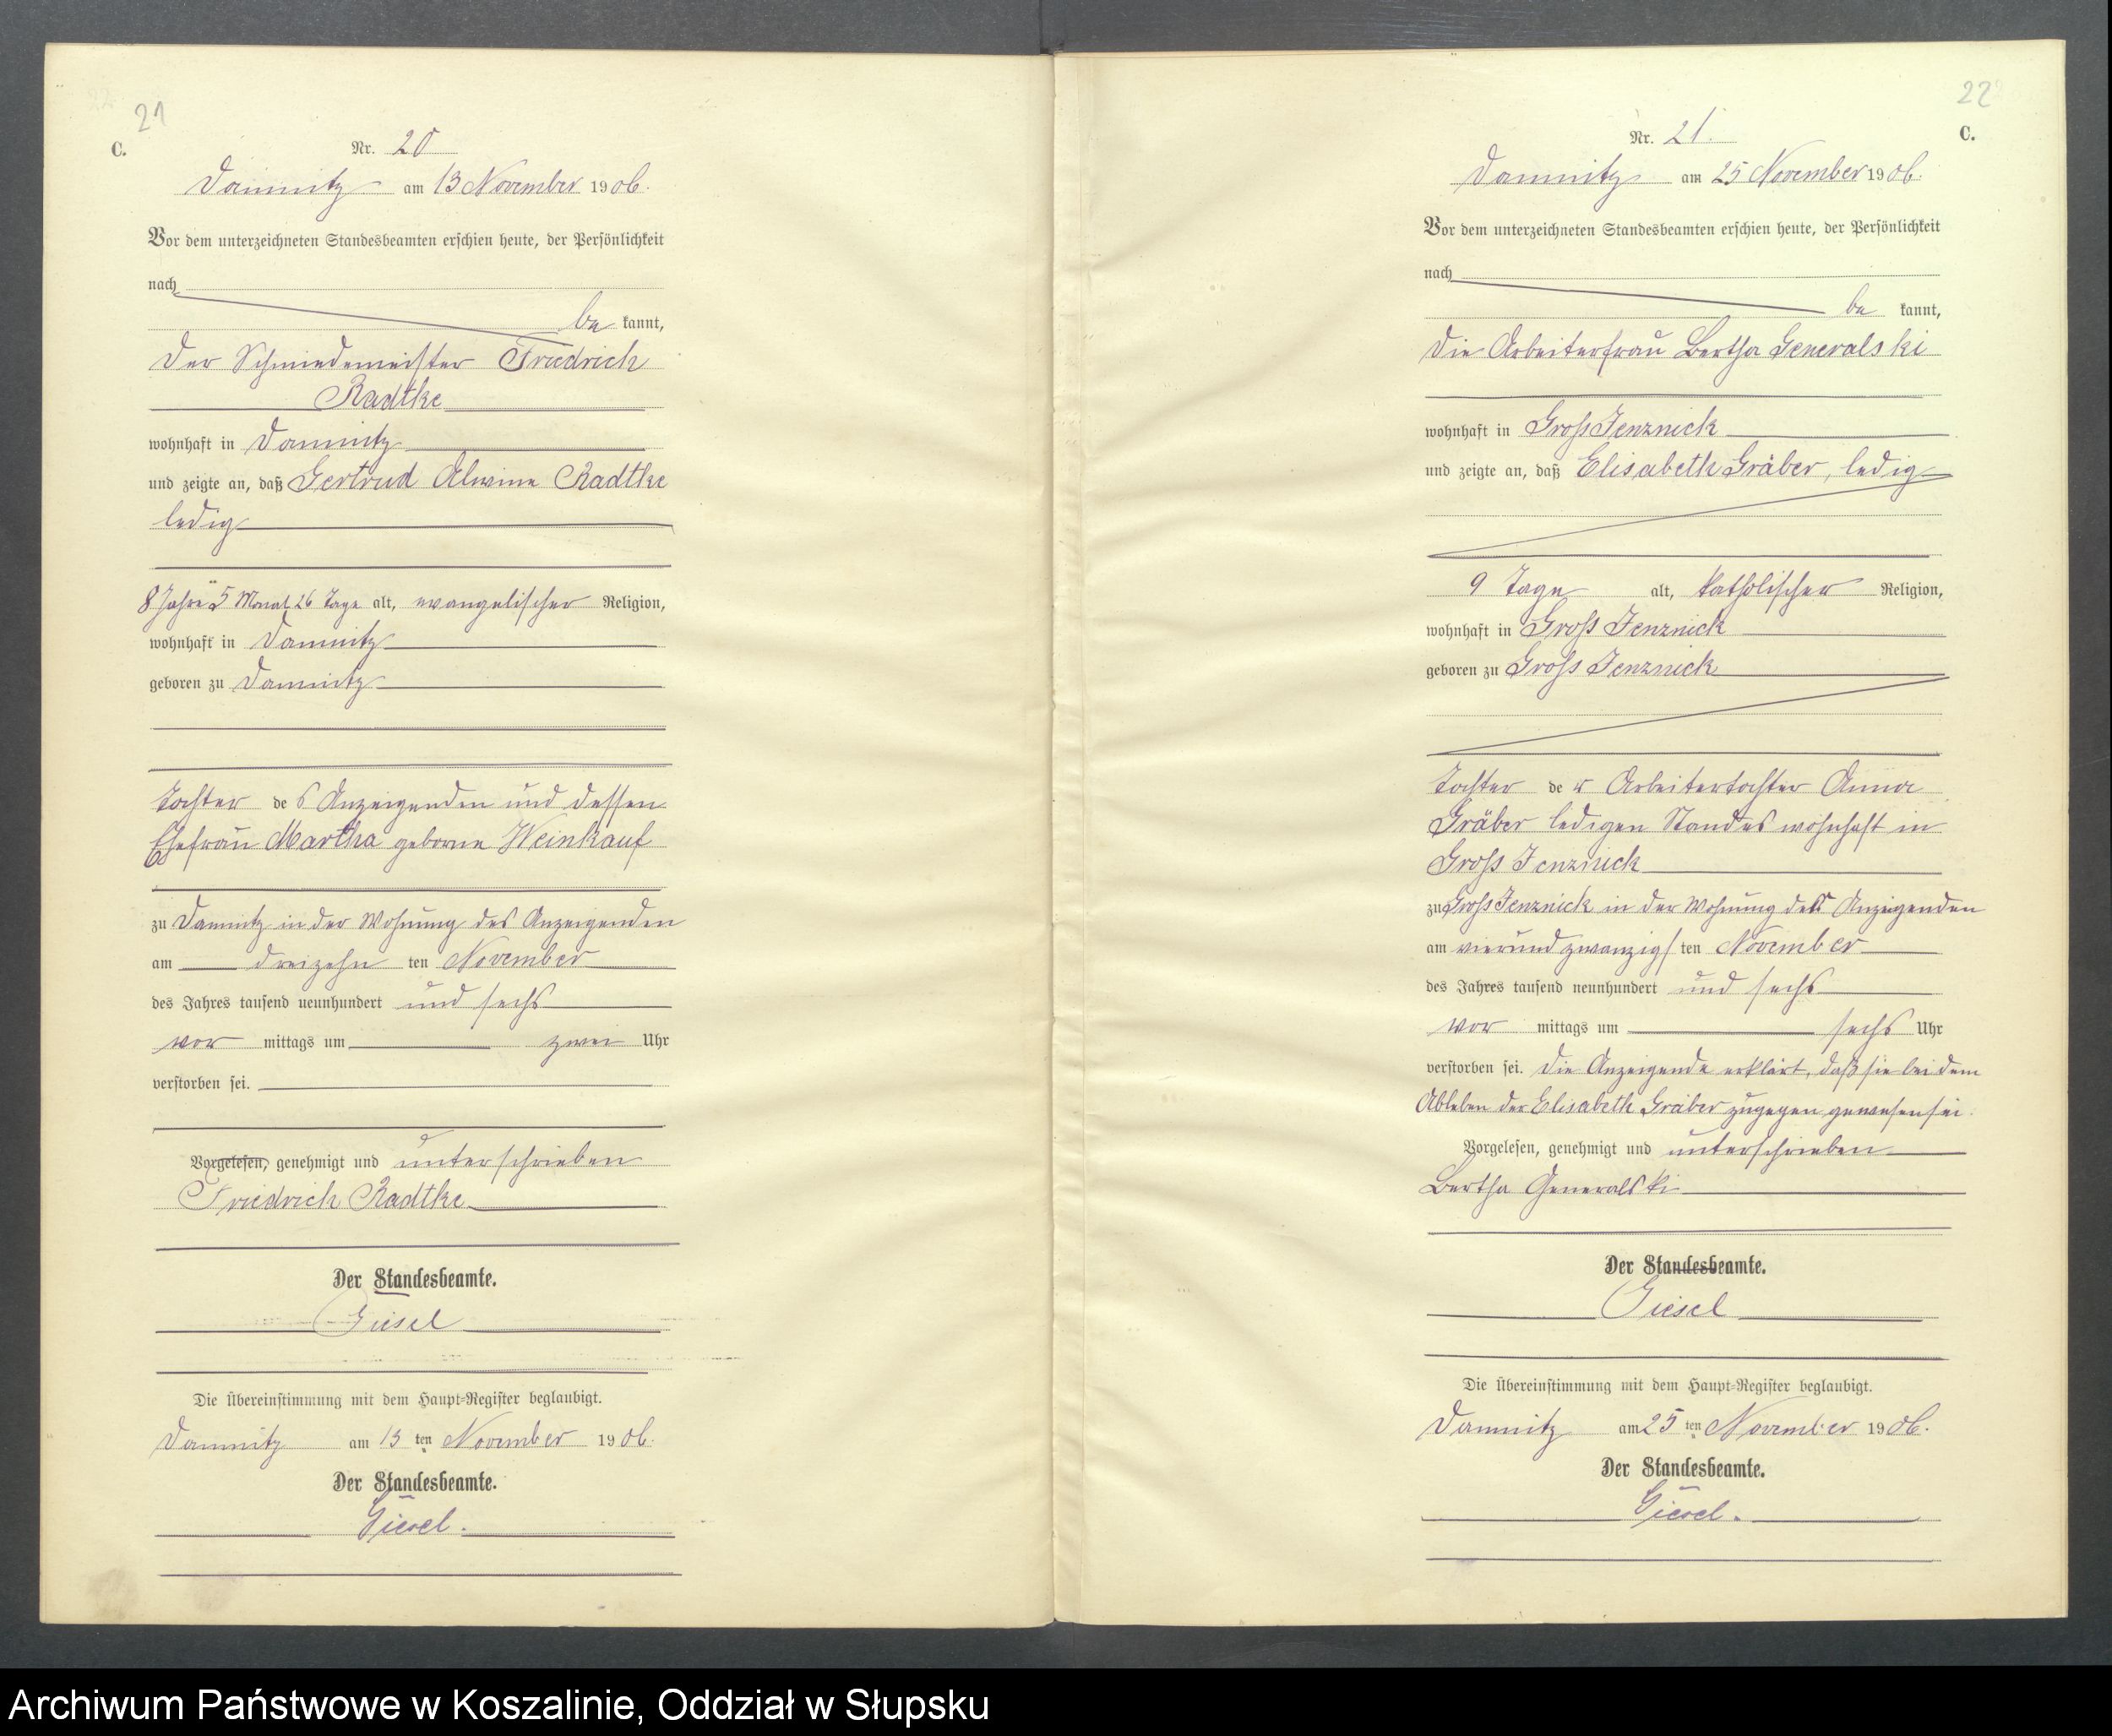 21
C.
Nr. 20
Damnitz am 13 November 1906.
Vor dem unterzeichneten Standesbeamten erschien heute, der Persönlichkeit
nach
be kannt,
der Schmiedemeister Friedrich
Radtke
wohnhaft in Damnitz
und zeigte an, daß Gertrud Alwine Radtke
ledig
8 Jahre 5 Monat 26 Tage alt, evangelischer Religion,
wohnhaft in Damnitz
geboren zu Damnitz
Tochter des Anzeigenden und dessen
Ehefrau Martha geborne Weinkauf
zu Damnitz in der Wohnung des Anzeigenden
am dreizehn ten November
des Jahres tausend neunhundert und sechs
vor mittags um zwei Uhr
verstorben sei.
Vorgelesen, genehmigt und unterschrieben
Friedrich Radtke
Der Standesbeamte.
Giesel
Die Übereinstimmung mit dem Haupt-Register beglaubigt.
Damnitz am 13 ten November 1906.
Der Standesbeamte.
Giesel.
22
C.
Nr. 21.
Damnitz am 25 November 1906.
Vor dem unterzeichneten Standesbeamten erschien heute, der Persönlichkeit
nach
be kannt,
die Arbeiterfrau Bertha Generalski
wohnhaft in Gross Jenznick
und zeigte an, daß Elisabeth Gräber, ledig
9 Tage alt, katholischer Religion,
wohnhaft in Gross Jenznick
geboren zu Gross Jenznick
Tochter der Arbeitertochter Anna
Gräber ledigen Standes wohnhaft in
Gross Jenznick
zu Gross Jenznick in der Wohnung der Anzeigenden
am vierundzwanzigs ten November
des Jahres tausend neunhundert und sechs
vor mittags um sechs Uhr
verstorben sei. Die Anzeigende erklärt, daß sie bei dem
Ableben der Elisabeth Gräber zugegen gewesen sei.
Vorgelesen, genehmigt und unterschrieben
Bertha Generalski
Der Standesbeamte.
Giesel
Die Übereinstimmung mit dem Haupt-Register beglaubigt.
Damnitz am 25 ten November 1906.
Der Standesbeamte.
Giesel.
Archiwum Państwowe w Koszalinie, Oddział w Słupsku